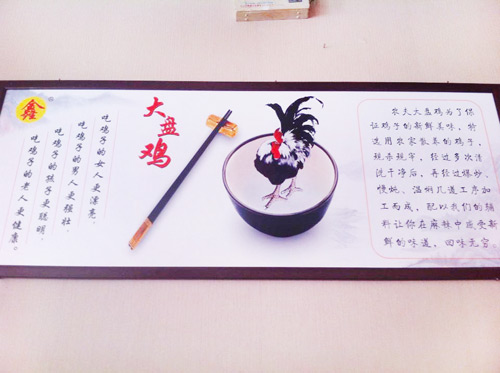 鑫
大盘鸡
吃鸡子的女人更漂亮
吃鸡子的男人更强壮
吃鸡子的孩子更聪明、
吃鸡子的老人更健康。
农夫大盘鸡为了保
证鸡子的新鲜美味，特
选用农家散养的鸡子，
现杀现宰，经过多次清
洗干净后，再经过爆炒、
慢炖、温焖几道工序加
工而成，配以我们的辅
料让你在麻辣中感受新
鲜的味道，回味无穷。